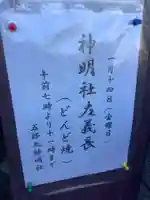 一月十四日(金曜日)
神明社左義長
(どんど焼)
午前七時より十一時まで
五郎丸神明社